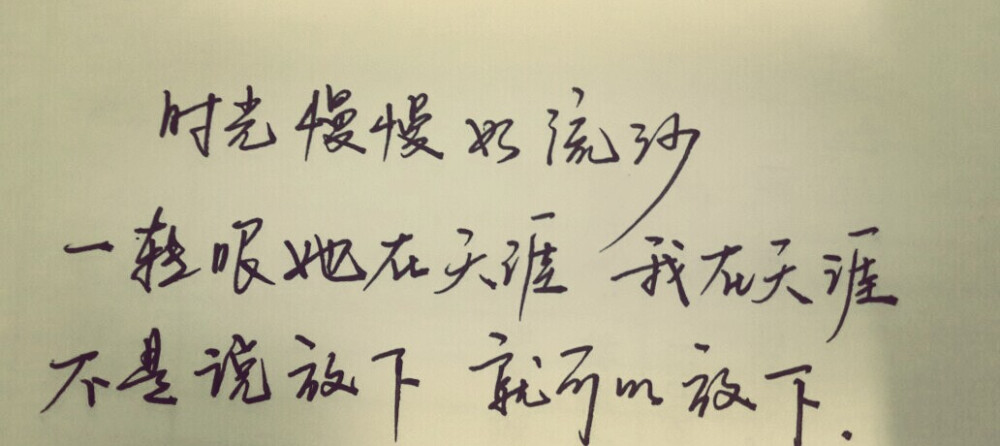 时光慢慢如流沙
一转眼她在天涯 我在天涯
不是说放下 就可以放下.